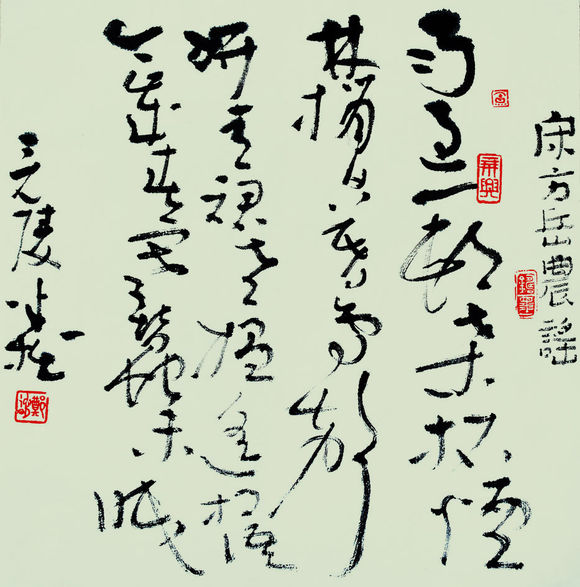 宋方岳農謠
雨過一村桑柘煙
林梢日暮鳥聲
妍青裙老媼遥相語
今歲春寒蠶未眠